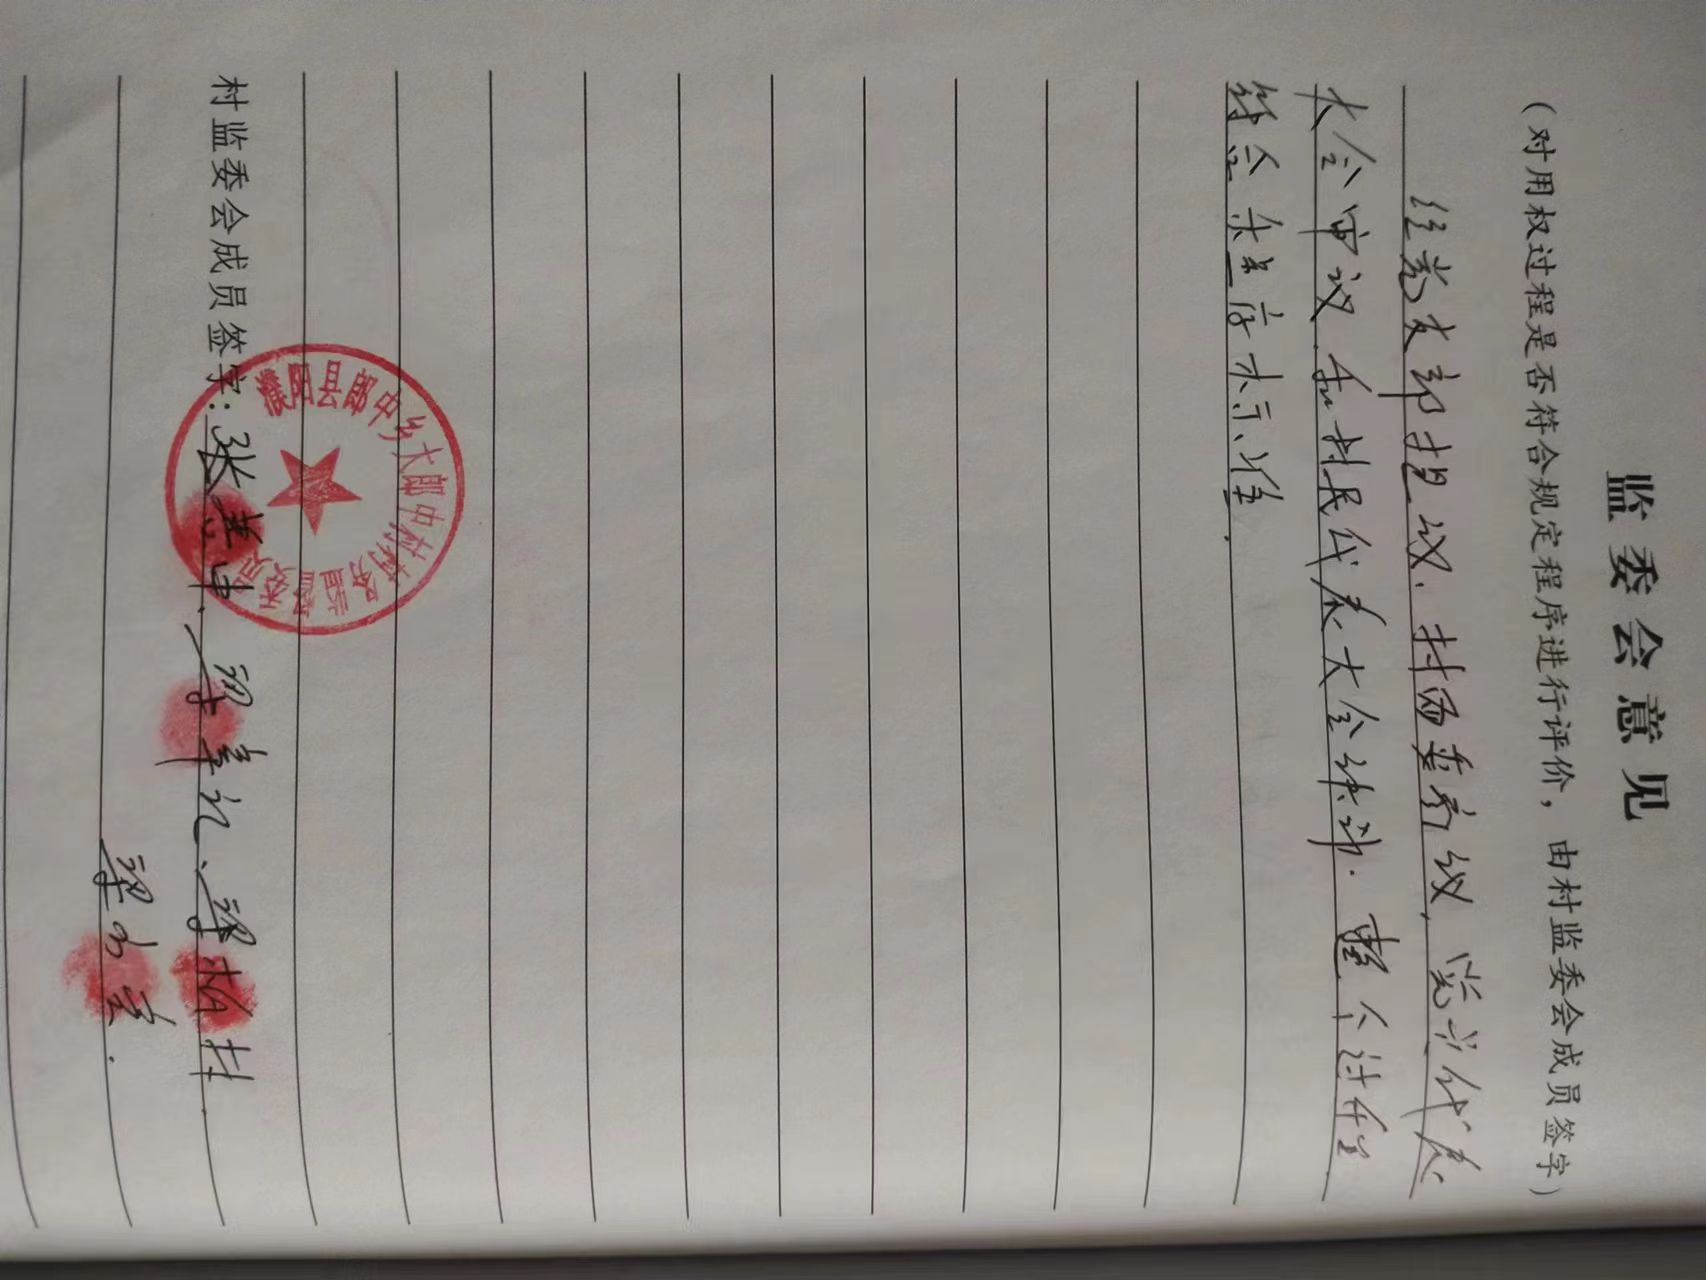 监委会意见
（对用权过程是否符合规定程序进行评价，由村监委会成员签字）
经党支部提议、村两委商议、党员代表
大会审议和村民代表大会决议。整个过程
符合
村监委会成员签字：张 中、 、
濮阳县郎中乡大郎中村村务监督委员会